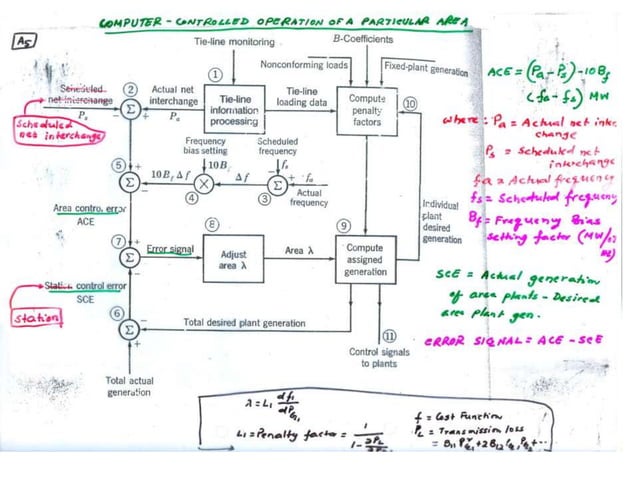 COMPUTER - CONTROLLED OPERATION OF A PARTICULAR AREA
A5
Tie-line monitoring
B-Coefficients
Nonconforming loads
Fixed-plant generation
Scheduled
net interchange
Ps
Scheduled
net interchange
②
Σ
Actual net
interchange
Pa
①
Tie-line
information
processing
Tie-line
loading data
Compute
penalty
factors
⑩
Frequency
bias setting
Scheduled
frequency
⑤
Σ
10Bf Δf
10Bf
④
Δf
③
Σ
fs
fa
Actual
frequency
Area control error
ACE
Individual
plant
desired
generation
⑦
Σ
Error signal
⑧
Adjust
area λ
Area λ
⑨
Compute
assigned
generation
Station control error
SCE
Station
⑥
Σ
Total desired plant generation
⑪
Control signals
to plants
Total actual
generation
ACE = (Pa - Ps) - 10Bf
(fa - fs) MW
where: Pa = Actual net inter.
change
Ps = Scheduled net
interchange
fa = Actual frequency
fs = Scheduled frequency
Bf = Frequeny Bias
setting factor (MW/0.1
Hz)
SCE = Actual generation
of area plants - Desired
area plant gen.
ERROR SIGNAL = ACE - SCE
λ = L1 df1/dPg1
L1 = Penalty factor = 1/1-∂PL
f = Cost Function
PL = Transmission loss